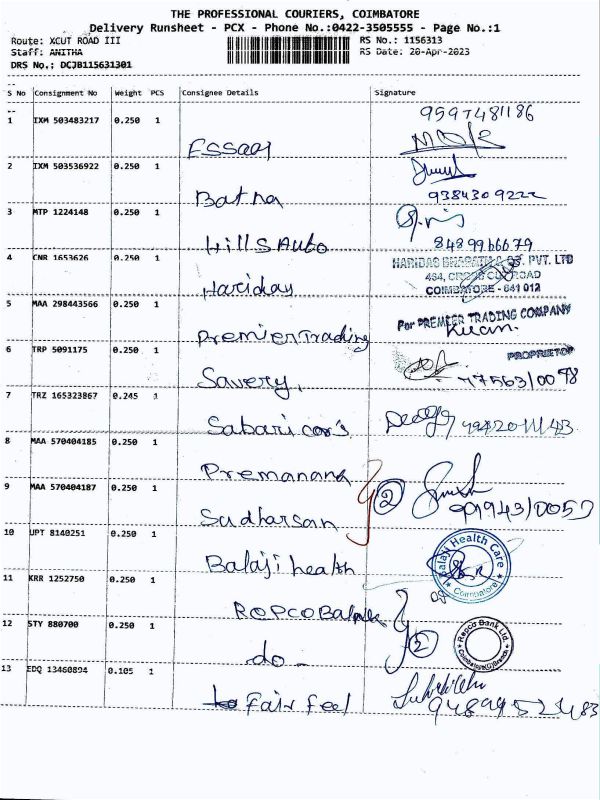 THE PROFESSIONAL COURIERS, COIMBATORE
Delivery Runsheet - PCX - Phone No.:0422-3505555 - Page No.:1
Route: XCUT ROAD III
RS No.: 1156313
Staff: ANITHA
RS Date: 20-Apr-2023
DRS No.: DCJB115631301
S No Consignment No Weight PCS Consignee Details Signature
1 IXM 503483217 0.250 1 9597481186
Essaq
2 IXM 503536922 0.250 1
Batna 9384309222
3 MTP 1224148 0.250 1
Hills Auto 8489966679
4 CNR 1653626 0.250 1 HARIDAS BHAGATH & CO. PVT. LTD
454, CROSS CUT ROAD
Hariday COIMBATORE - 641 012
5 MAA 298443566 0.250 1 For PREMIER TRADING COMPANY
Premier Trading
6 TRP 5091175 0.250 1 PROPRIETOR
Savery.
7 TRZ 165323867 0.245 1
Sabari car's
8 MAA 570404185 0.250 1
Premanand
9 MAA 570404187 0.250 1 2
Sudharsan
10 UPT 8140251 0.250 1 Balaji Health Care
Balaji health Coimbatore
11 KRR 1252750 0.250 1
REPCO Bank
12 STY 880700 0.250 1 2 Repco Bank Ltd.
do -
13 EDQ 13460894 0.105 1
Fair feel